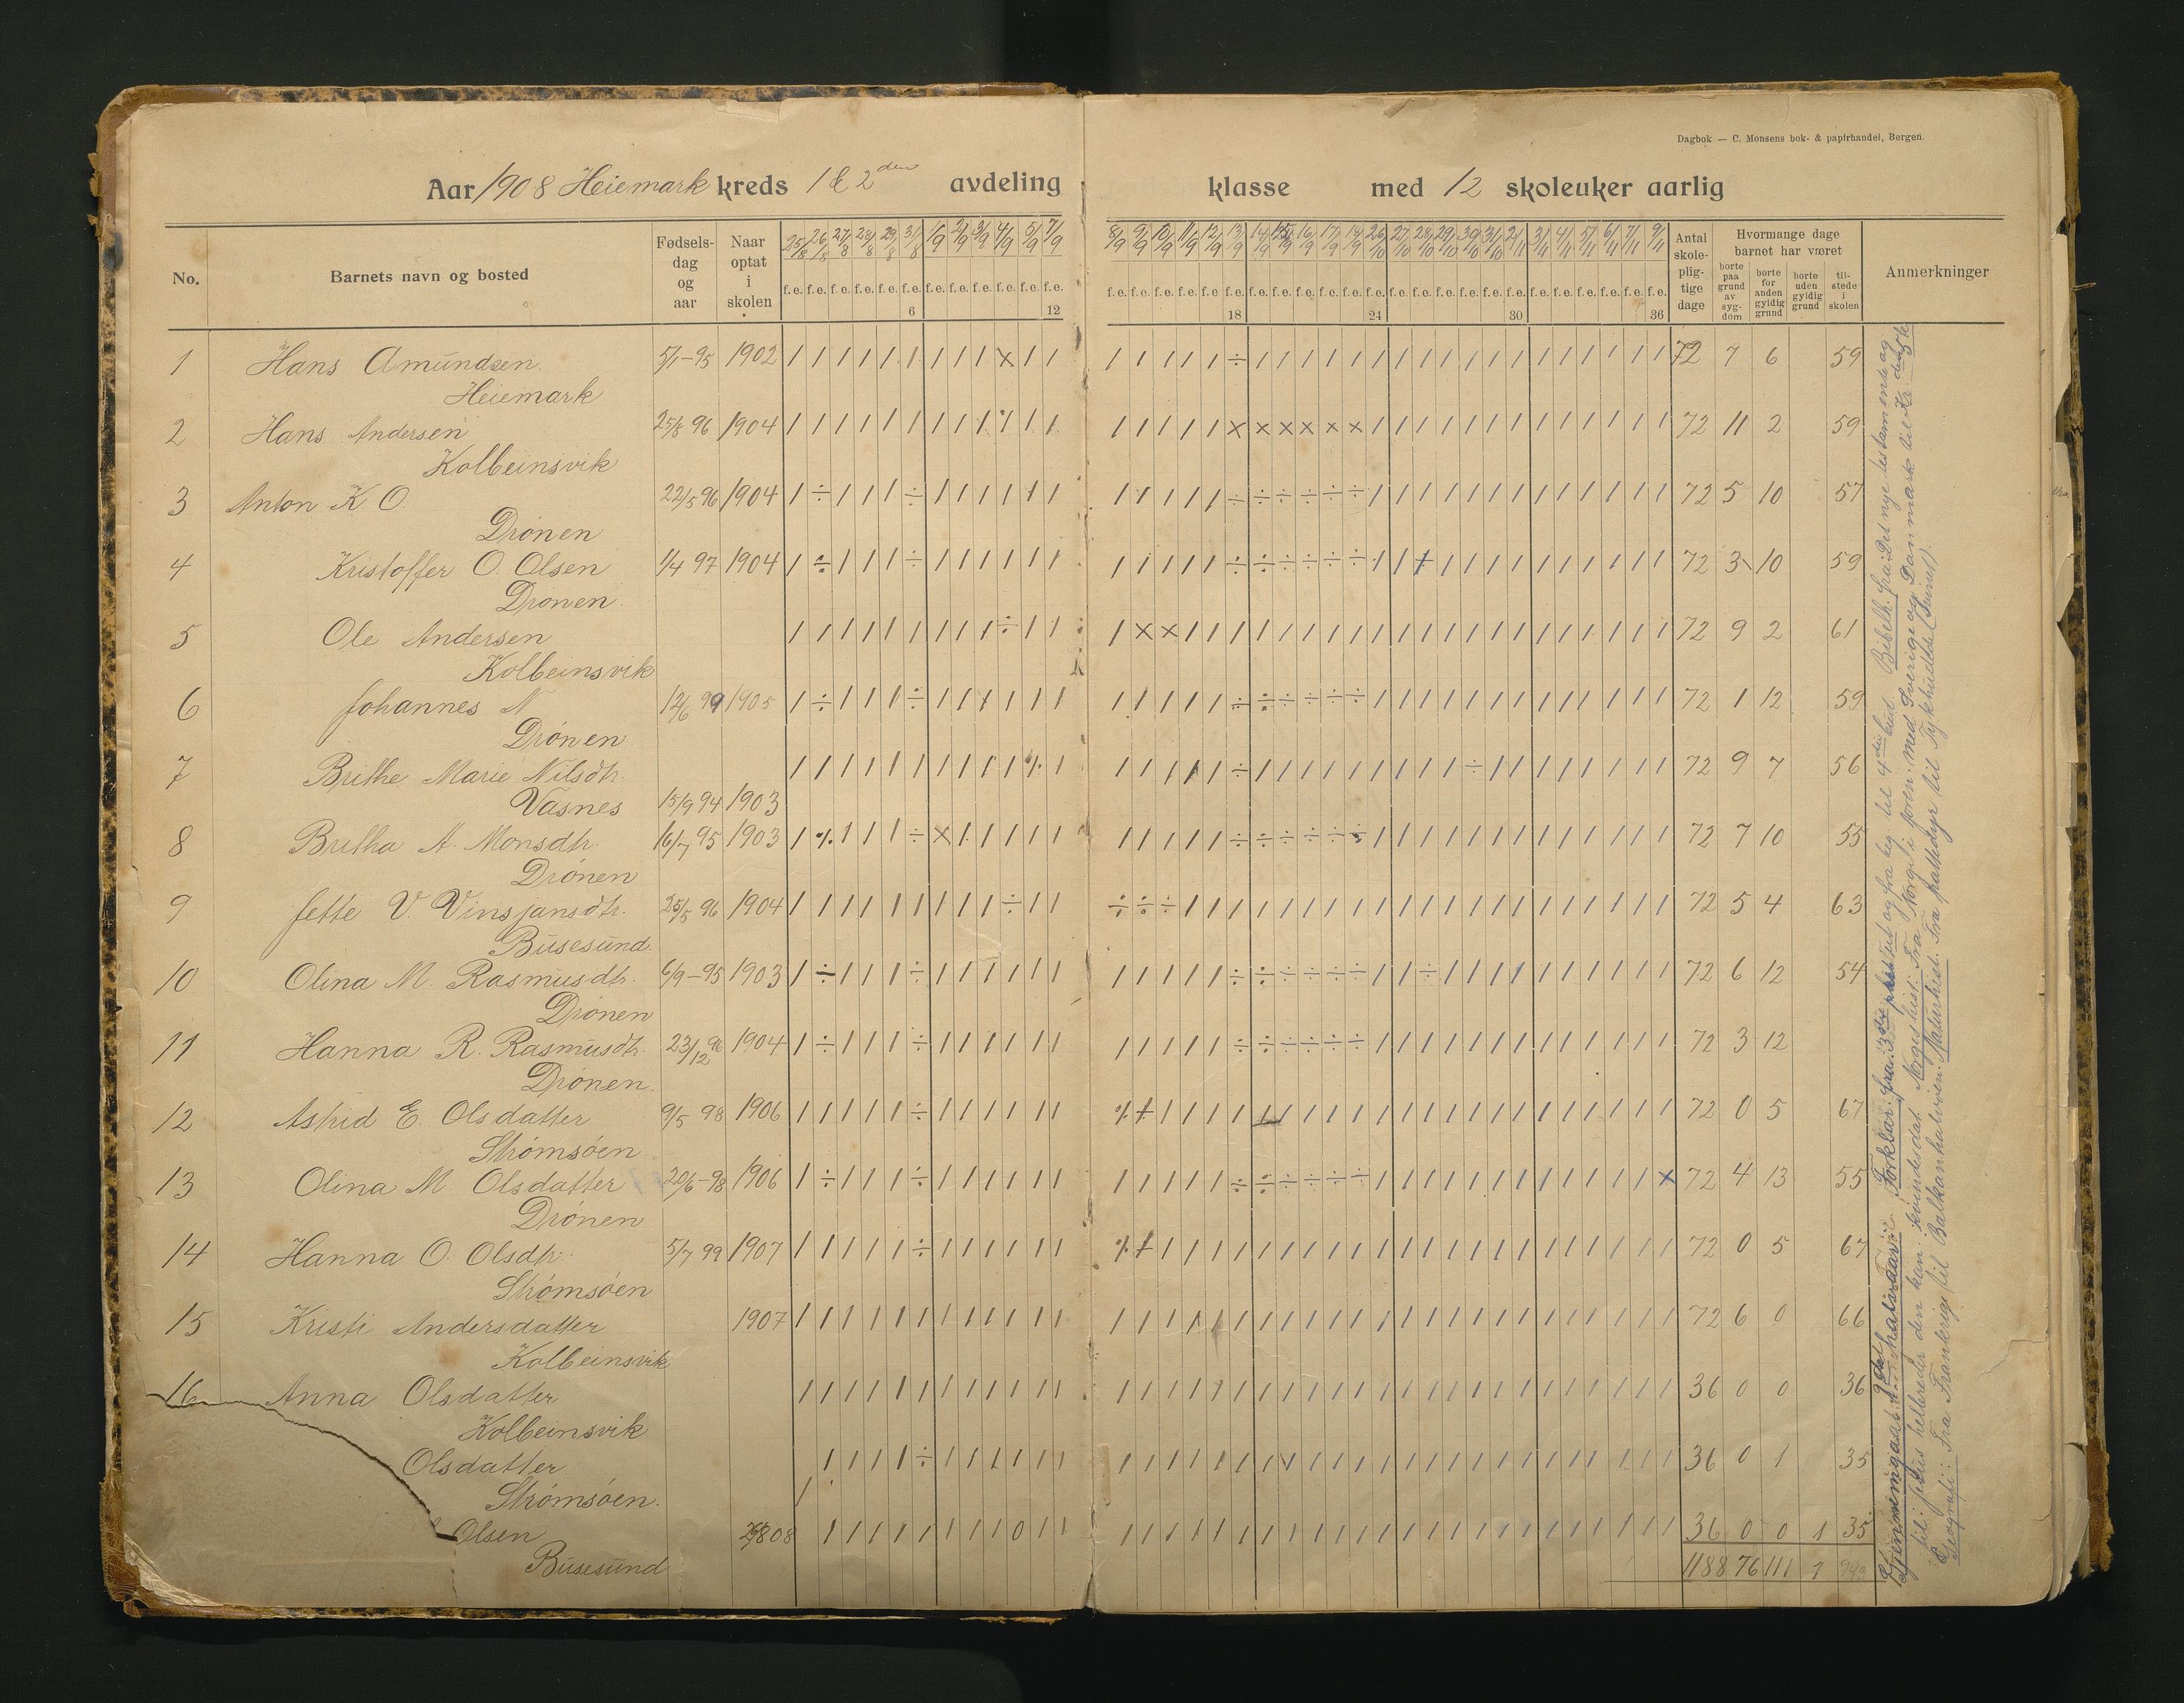 Dagbok — C. Monsens bok- & papirhandel, Bergen.
Aar 1908 Heiemark kreds 1 & 2den avdeling klasse med 12 skoleuker aarlig
No. Barnets navn og bosted Fødsels-dag og aar Naar optat i skolen 25/8 26/8 27/8 28/8 29/8 31/8 1/9 2/9 3/9 4/9 5/9 7/9 8/9 9/9 10/9 11/9 12/9 13/9 14/9 15/9 16/9 17/9 26/10 27/10 28/10 29/10 30/10 31/10 2/11 3/11 4/11 5/11 6/11 7/11 9/11 Antal skole-plig-tige dage Hvormange dage barnet har været Anmerkninger
borte paa grund av syg-dom borte for anden gyldig grund borte uden gyldig grund til-stede i skolen
f.e. f.e. f.e. f.e. f.e. f.e. f.e. f.e. f.e. f.e. f.e. f.e. f.e. f.e. f.e. f.e. f.e. f.e. f.e. f.e. f.e. f.e. f.e. f.e. f.e. f.e. f.e. f.e. f.e. f.e. f.e. f.e. f.e. f.e. f.e. f.e.
6 12 18 24 30 36
1 Hans Amundsen 5/1-95 1902 72 7 6 59
Heiemark
2 Hans Andersen 25/8 96 1904 72 11 2 59
Kolbeinsvik
3 Anton K. O. 22/5 96 1904 72 5 10 57
Drönen
4 Kristoffer O. Olsen 1/4 97 1904 72 3 10 59
Drönen
5 Ole Andersen 72 9 2 61
Kolbeinsvik
6 Johannes N 12/6 99 1905 72 1 12 59
Drönen
7 Brithe Marie Nilsdtr. 72 9 7 56
Vasnes 15/9 94 1903
8 Britha A. Monsdtr. 16/7 95 1903 72 7 10 55
Drönen
9 Jette V. Vinsjansdtr. 25/5 96 1904 72 5 4 63
Busesund
10 Olina M. Rasmusdtr. 6/9-95 1903 72 6 12 54
Drönen
11 Hanna R. Rasmusdtr. 23/12 96 1904 72 3 12
Drönen
12 Astrid E. Olsdatter 9/5 98 1906 72 0 5 67
Strømsöen
13 Olina M. Olsdatter 20/6-98 1906 72 4 13 55
Drönen
14 Hanna O. Olsdtr. 5/7 99 1907 72 0 5 67
Strømsöen
15 Kristi Andersdatter 1907 72 6 0 66
Kolbeinsvik
16 Anna Olsdatter 36 0 0 36
Kolbeinsvik
Olsdatter 36 0 1 35
Strømsöen.
Olsen 08 36 0 0 1 35
Busesund
1188 76 111 1 943
Gjennemgaat: Forklar: fra 3die og fra lig til 4de bud. Bibelh: fra: Det nye testamente og
til: Jesus helbreder den han kvindes dat. Norgeshist: Fra Norge i foren: med Sverige og Danmark til
Geografi: Fra Frankerige til Balkanhalvøen: Naturhist: Fra patkedyr til Tykhudede (Svinet)